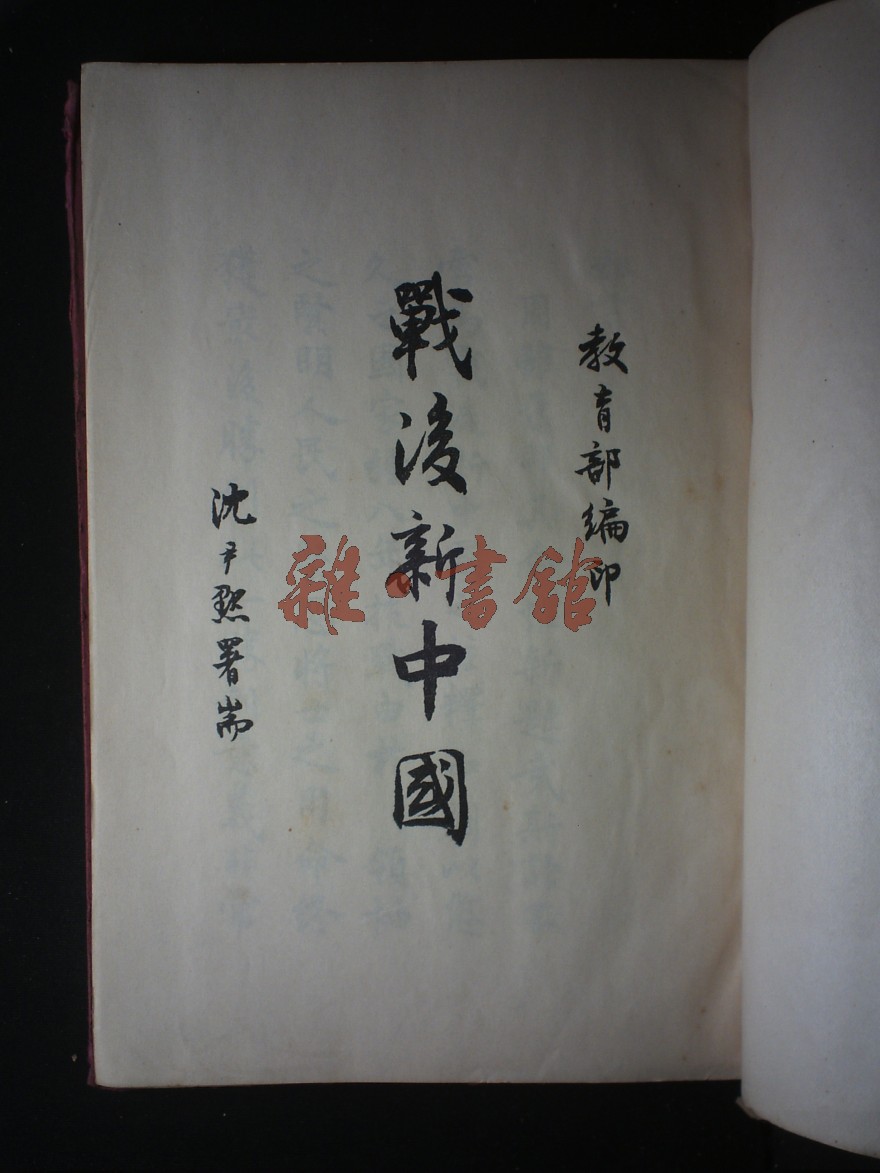 教育部編印
戰後新中國
沈尹默署耑
雜·書館